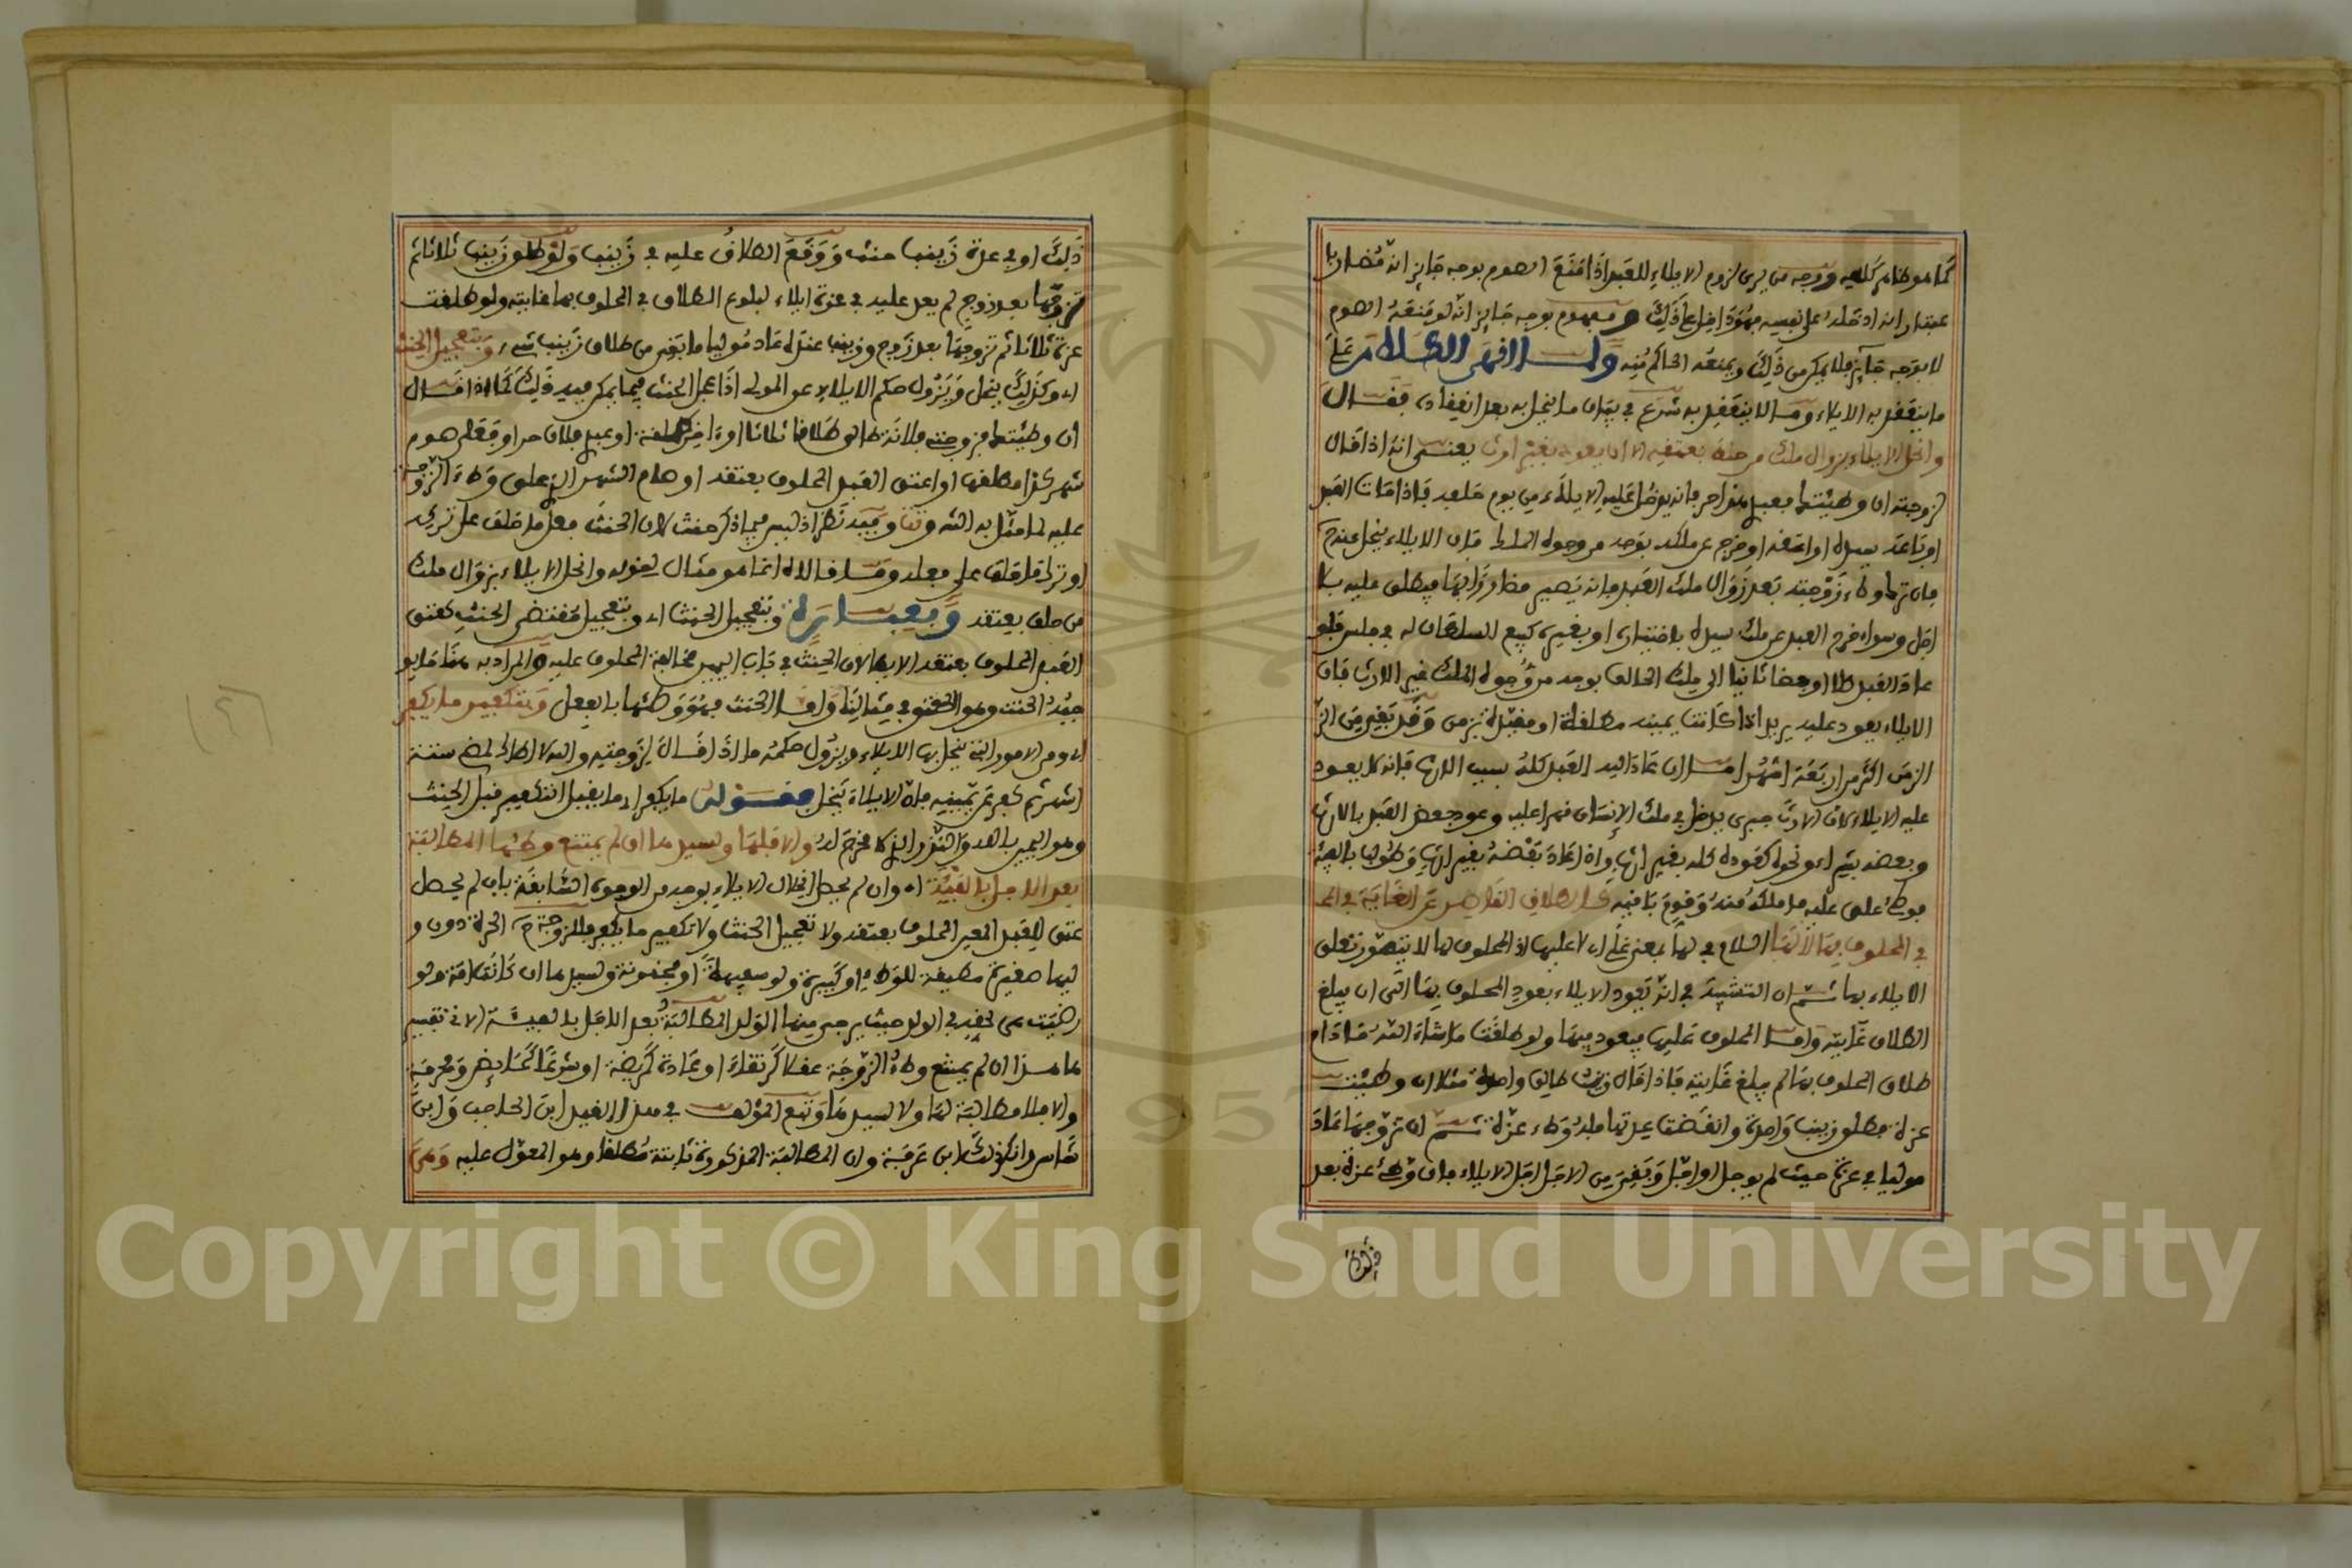 كما هو ظاهر كلامه ووجه من يرى لزوم الايلاء للعبد اذا منع الصوم بوجه جايز انه مضار بها
عقد ان ادخله على نفسه فهو داخل على ذلك ومفهوم بوجه جايز انه لو منعه الصوم
لا بوجه جايز فلا يمكن من ذلك ويمنعه الحاكم منه ولما انهى الكلام على
ما ينعقد به الايلاء وما لا ينعقد به شرع في بيان ما ينحل به بعد انعقاده فقال
وانحل الايلاء بزوال ملك من حلف بعتقه الا ان يعود بغير ارث يعني انه اذا قال
لزوجته ان وطئتك فعبدي هذا حر فانه يدخل عليه الايلاء من يوم حلفه فاذا مات العبد
او باعه سيده او اعتقه او خرج عن ملكه بوجه من وجوه الملك فان الايلاء ينحل عنه
فان ترك وطء زوجته بعد زوال ملك العبد فانه يصير مضاررا بها فيطلق عليه بلا
اجل وسواء خرج العبد عن ملك سيده باختياره او بغيره كبيع السلطان له في فلس فلو
عاد العبد كلا او بعضا ثانيا الى ملك الحالف بوجه من وجوه الملك غير الارث فان
الايلاء يعود عليه يريد اذا كانت يمينه مطلقة او مقيدة بزمن وقد بقي من
الزمن اكثر من اربعة اشهر اما ان عاد اليه العبد كله بسبب الارث فانه لا يعود
عليه الايلاء لان الارث جبري يدخل في ملك الانسان قهرا عليه وعود بعض العبد بالارث
وبعضه بشراء ونحوه كعوده كله بغير ارث واذا عاد بعضه بغير ارث وطولب بالفيئة
فوطئ عتق عليه ما ملك منه وقوم باقيه كالطلاق القاصر عن الغاية
في المحلوف بها لا لها اللام في لها بمعنى على اي لا عليها اذ المحلوف لها لا يتصور تعلق
الايلاء بها ثم ان التشبيه في انه يعود الايلاء بعود المحلوف بها الى ان يبلغ
الطلاق غايته واما المحلوف عليها فيعود فيها ولو طلقت ما شاء الله ما دام
طلاق المحلوف بها لم يبلغ غايته فاذا قال زينب طالق واحدة مثلا ان وطئت
عزة فطلق زينب واحدة وانقضت عدتها فله وطء عزة ثم ان تزوجها عاد
موليا في عزة حيث لم يوجل او اجل وبقي من الاجل اجل الايلاء فان وطئ عزة بعد
ذلك
ذلك او في عدة زينب حنث ووقع الطلاق عليه في زينب ولو طلق زينب ثلاثا ثم
تزوجها بعد زوج لم يعد عليه في عزة ايلاء لبلوغ الطلاق في المحلوف بها غايته ولو طلقت
عزة ثلاثا ثم تزوجها بعد زوج وزينب عنده عاد موليا ما بقي من طلاق زينب شيء وبتعجيل الحنث
اي وكذلك ينحل ويزول حكم الايلاء عن المولي اذا عجل الحنث فيما يمكن فيه ذلك كما اذا قال
ان وطئتك فزوجتي فلانة طالق طلاقا ثلاثا او فعبدي فلان حر او فعلي صوم
شهر كذا فطلقها او اعتق العبد المحلوف بعتقه او صام الشهر الذي علق وطء الزوجة
عليه كما مثل به الشارح وتت وفيه نظر اذ ليس فيما ذكر حنث لان الحنث فعل ما حلف على تركه
او ترك ما حلف على فعله وما قالاه انما هو مثال لقوله وانحل الايلاء بزوال ملك
من حلف بعتقه وبعبارة وتعجيل الحنث اي وبتعجيل مقتضى الحنث كعتق
العبد المحلوف بعتقه الا بها لان الحنث في باب اليمين مخالفة المحلوف عليه والمراد به هنا ما يوجبه
الحنث وهو العتق في مثالنا واما الحنث فهو وطئها بالفعل وبتكفير ما يكفر
اي ومن الامور التي ينحل بها الايلاء ويزول حكمه ما اذا قال لزوجته والله لا اطاك خمسة
اشهر ثم كفر عن يمينه فان الايلاء ينحل فقوله ما يكفر اي ما يقبل التكفير قبل الحنث
وهو اليمين بالله والنذر الذي لا مخرج له والا فلها ولسيدها ان لم يمتنع وطئها المطالبة
بعد الاجل بالفيئة اي وان لم يحصل انحلال الايلاء بوجه من الوجوه السابقة بان لم يحصل
عتق للعبد المعين المحلوف بعتقه ولا تعجيل الحنث ولا تكفير ما يكفر فللزوجة الحرة دون
وليها صغيرة مطيقة للوطء او كبيرة ولو سفيهة او مجنونة ولسيدها ان كانت امة ولو
رضيت هي لحقه في الولد حيث يرجى منها الولد المطالبة بعد الاجل بالفيئة الاتي تفسيرها
هذا ان لم يمتنع وطء الزوجة عقلا كرتقاء او عادة كمريضة او شرعا كحايض ومحرمة
والا فلا مطالبة لها ولا لسيدها وتبع المؤلف في هذا القيد ابن الحاجب وابن
شاس وانكر ذلك ابن عرفة وان المطالبة المذكورة ثابتة مطلقا وهو المعول عليه وهي
Copyright © King Saud University